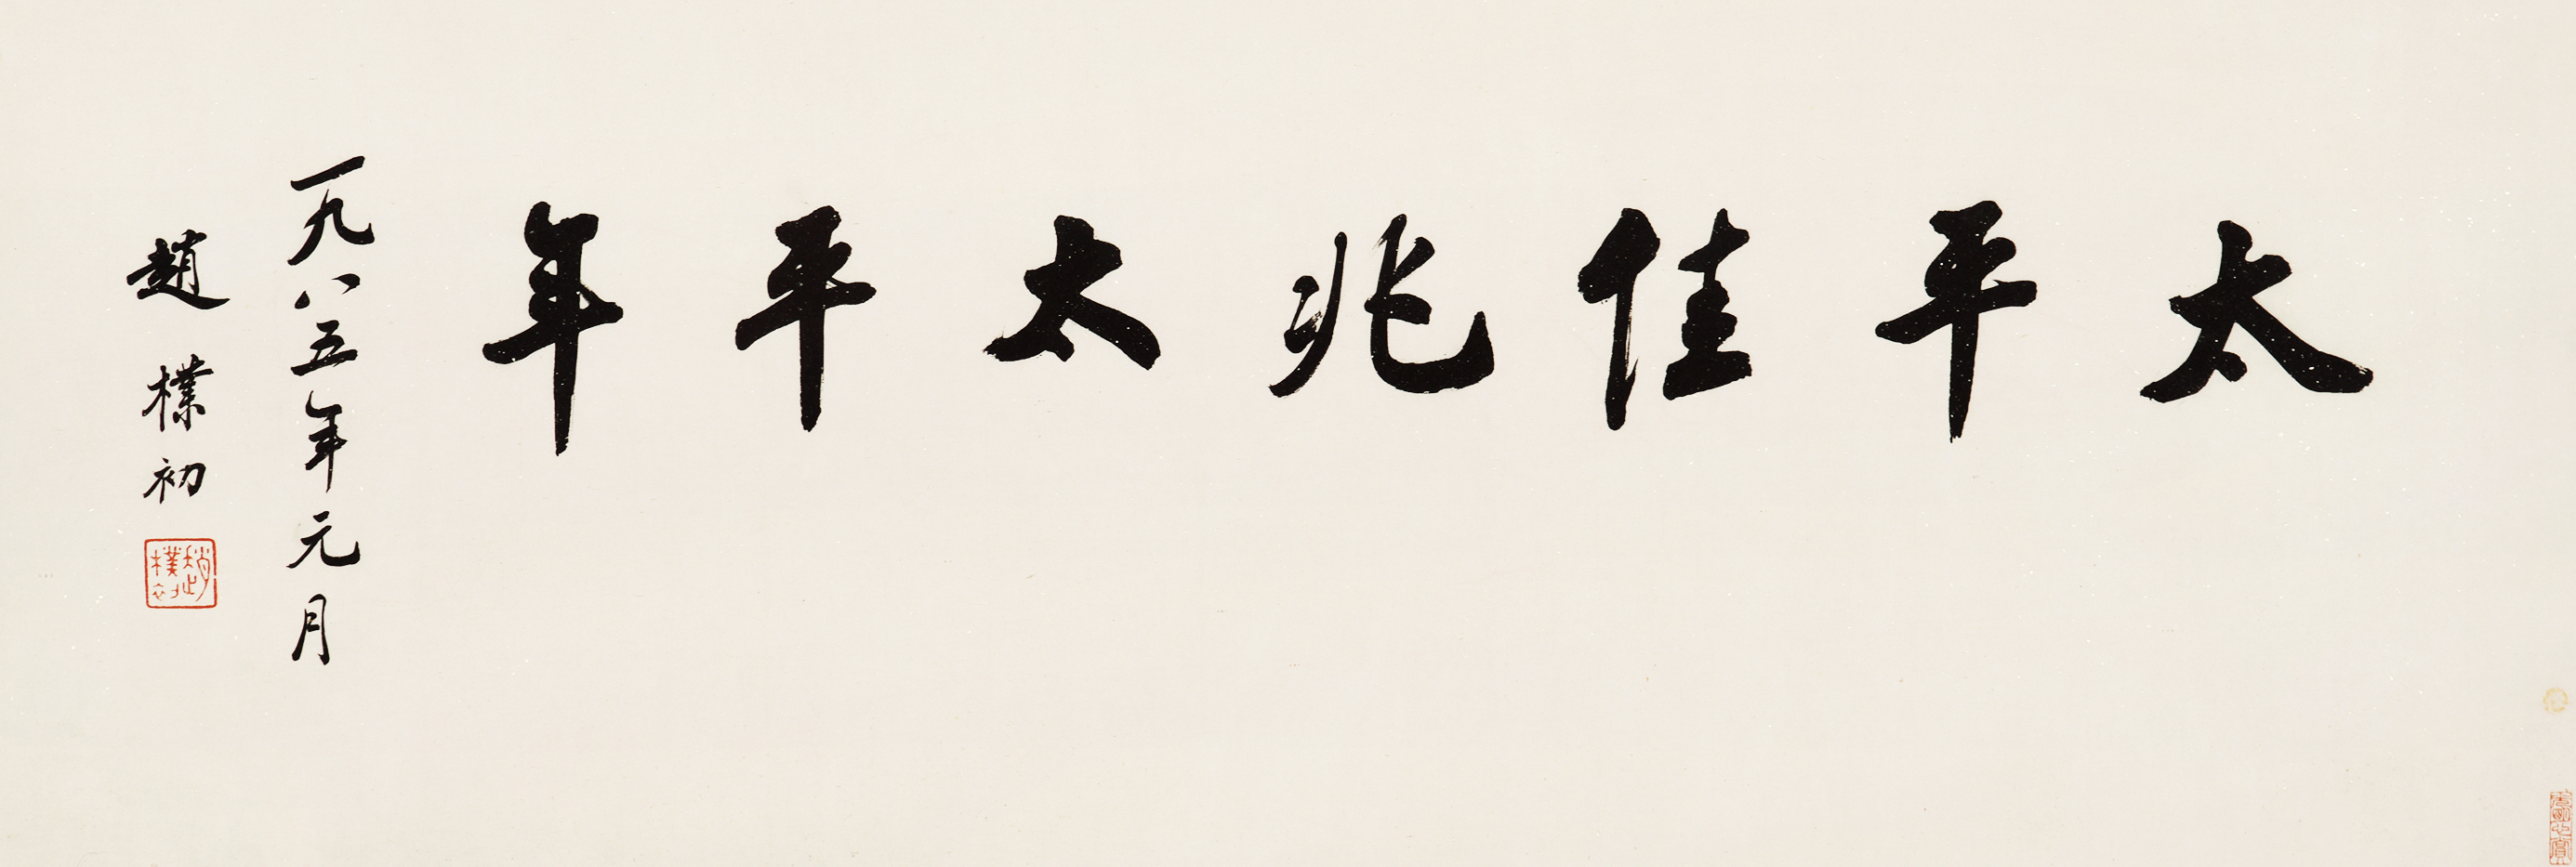 太平佳兆太平年
一九八五年元月
趙樸初
趙樸初